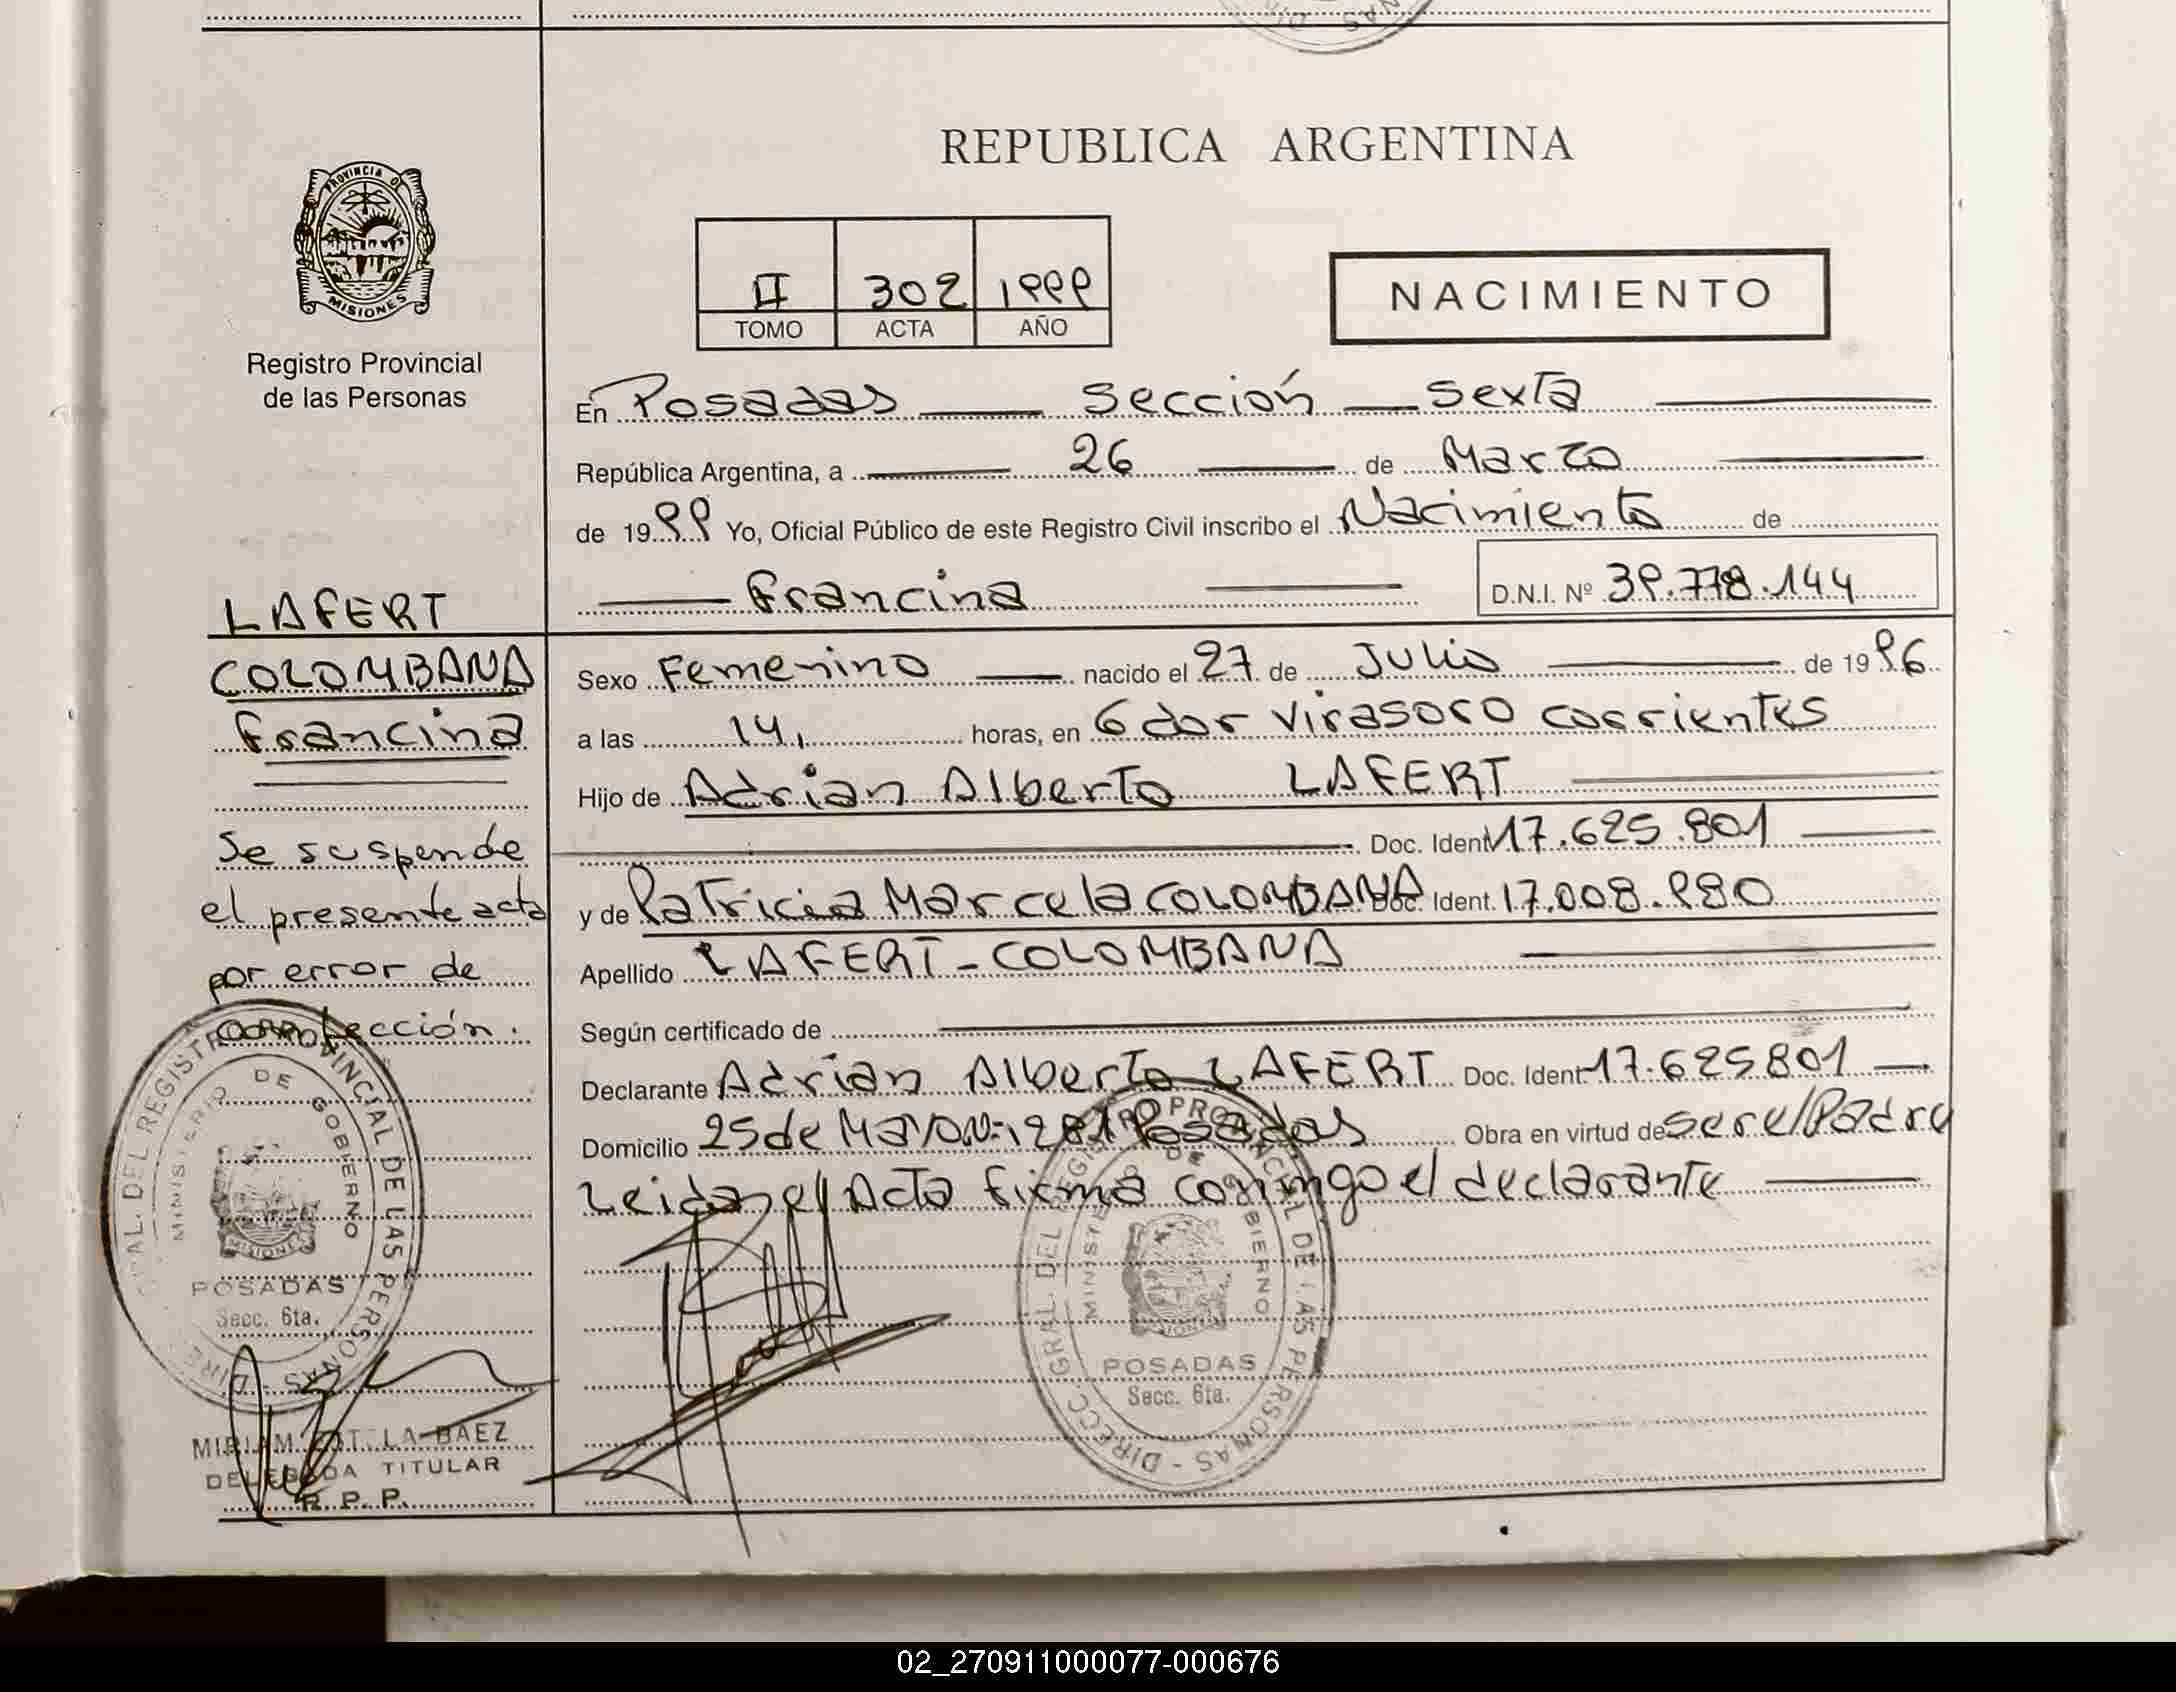 REPUBLICA ARGENTINA
PROVINCIA DE
MISIONES
Registro Provincial
de las Personas
II 302 1999
TOMO ACTA AÑO
NACIMIENTO
En Posadas sección sexta
República Argentina, a 26 de Marzo
de 1999 Yo, Oficial Público de este Registro Civil inscribo el Nacimiento de
Francina D.N.I. Nº 39.778.144
LAFERT
COLOMBANA
Francina
Se suspende
el presente acta
por error de
confección.
Sexo Femenino nacido el 27 de Julio de 1996
a las 14, horas, en Gdor Virasoro corrientes
Hijo de Adrian Alberto LAFERT
Doc. Ident. 17.625.801
y de Patricia Marcela COLOMBANA Doc. Ident. 17.008.980
Apellido LAFERT-COLOMBANA
Según certificado de
Declarante Adrian Alberto LAFERT Doc. Ident. 17.625801
Domicilio 25 de Mayo Nº 1281 Posadas Obra en virtud de ser el Padre
Leida el Acta firma conmigo el declarante
DIRECC. GRAL. DEL REGISTRO PROVINCIAL DE LAS PERSONAS
MINISTERIO DE GOBIERNO
MISIONES
POSADAS
Secc. 6ta.
DIRECC. GRAL. DEL REGISTRO PROVINCIAL DE LAS PERSONAS
MINISTERIO DE GOBIERNO
MISIONES
POSADAS
Secc. 6ta.
MIRIAM BAEZ
DELEGADA TITULAR
R. P. P.
02_270911000077-000676